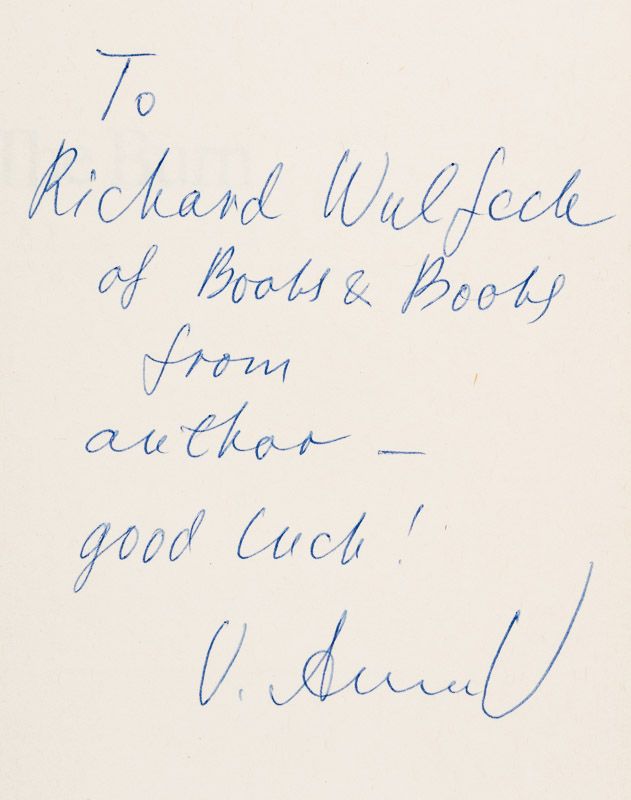 To
Richard Wulfeck
of Books & Books
from
author —
good luck!
V.